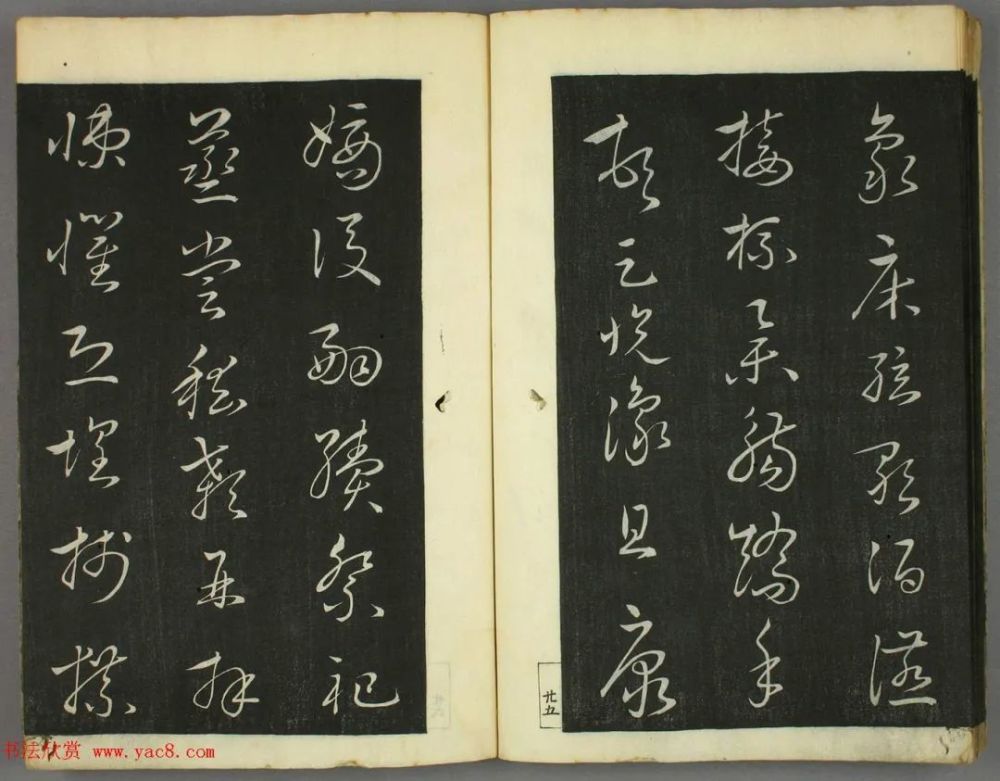 象床絃歌酒讌
接杯舉觴矯手
頓足悅豫且康
廿五
嫡後嗣續祭祀
蒸嘗稽顙再拜
悚懼恐惶牋牒
书法欣赏 www.yac8.com